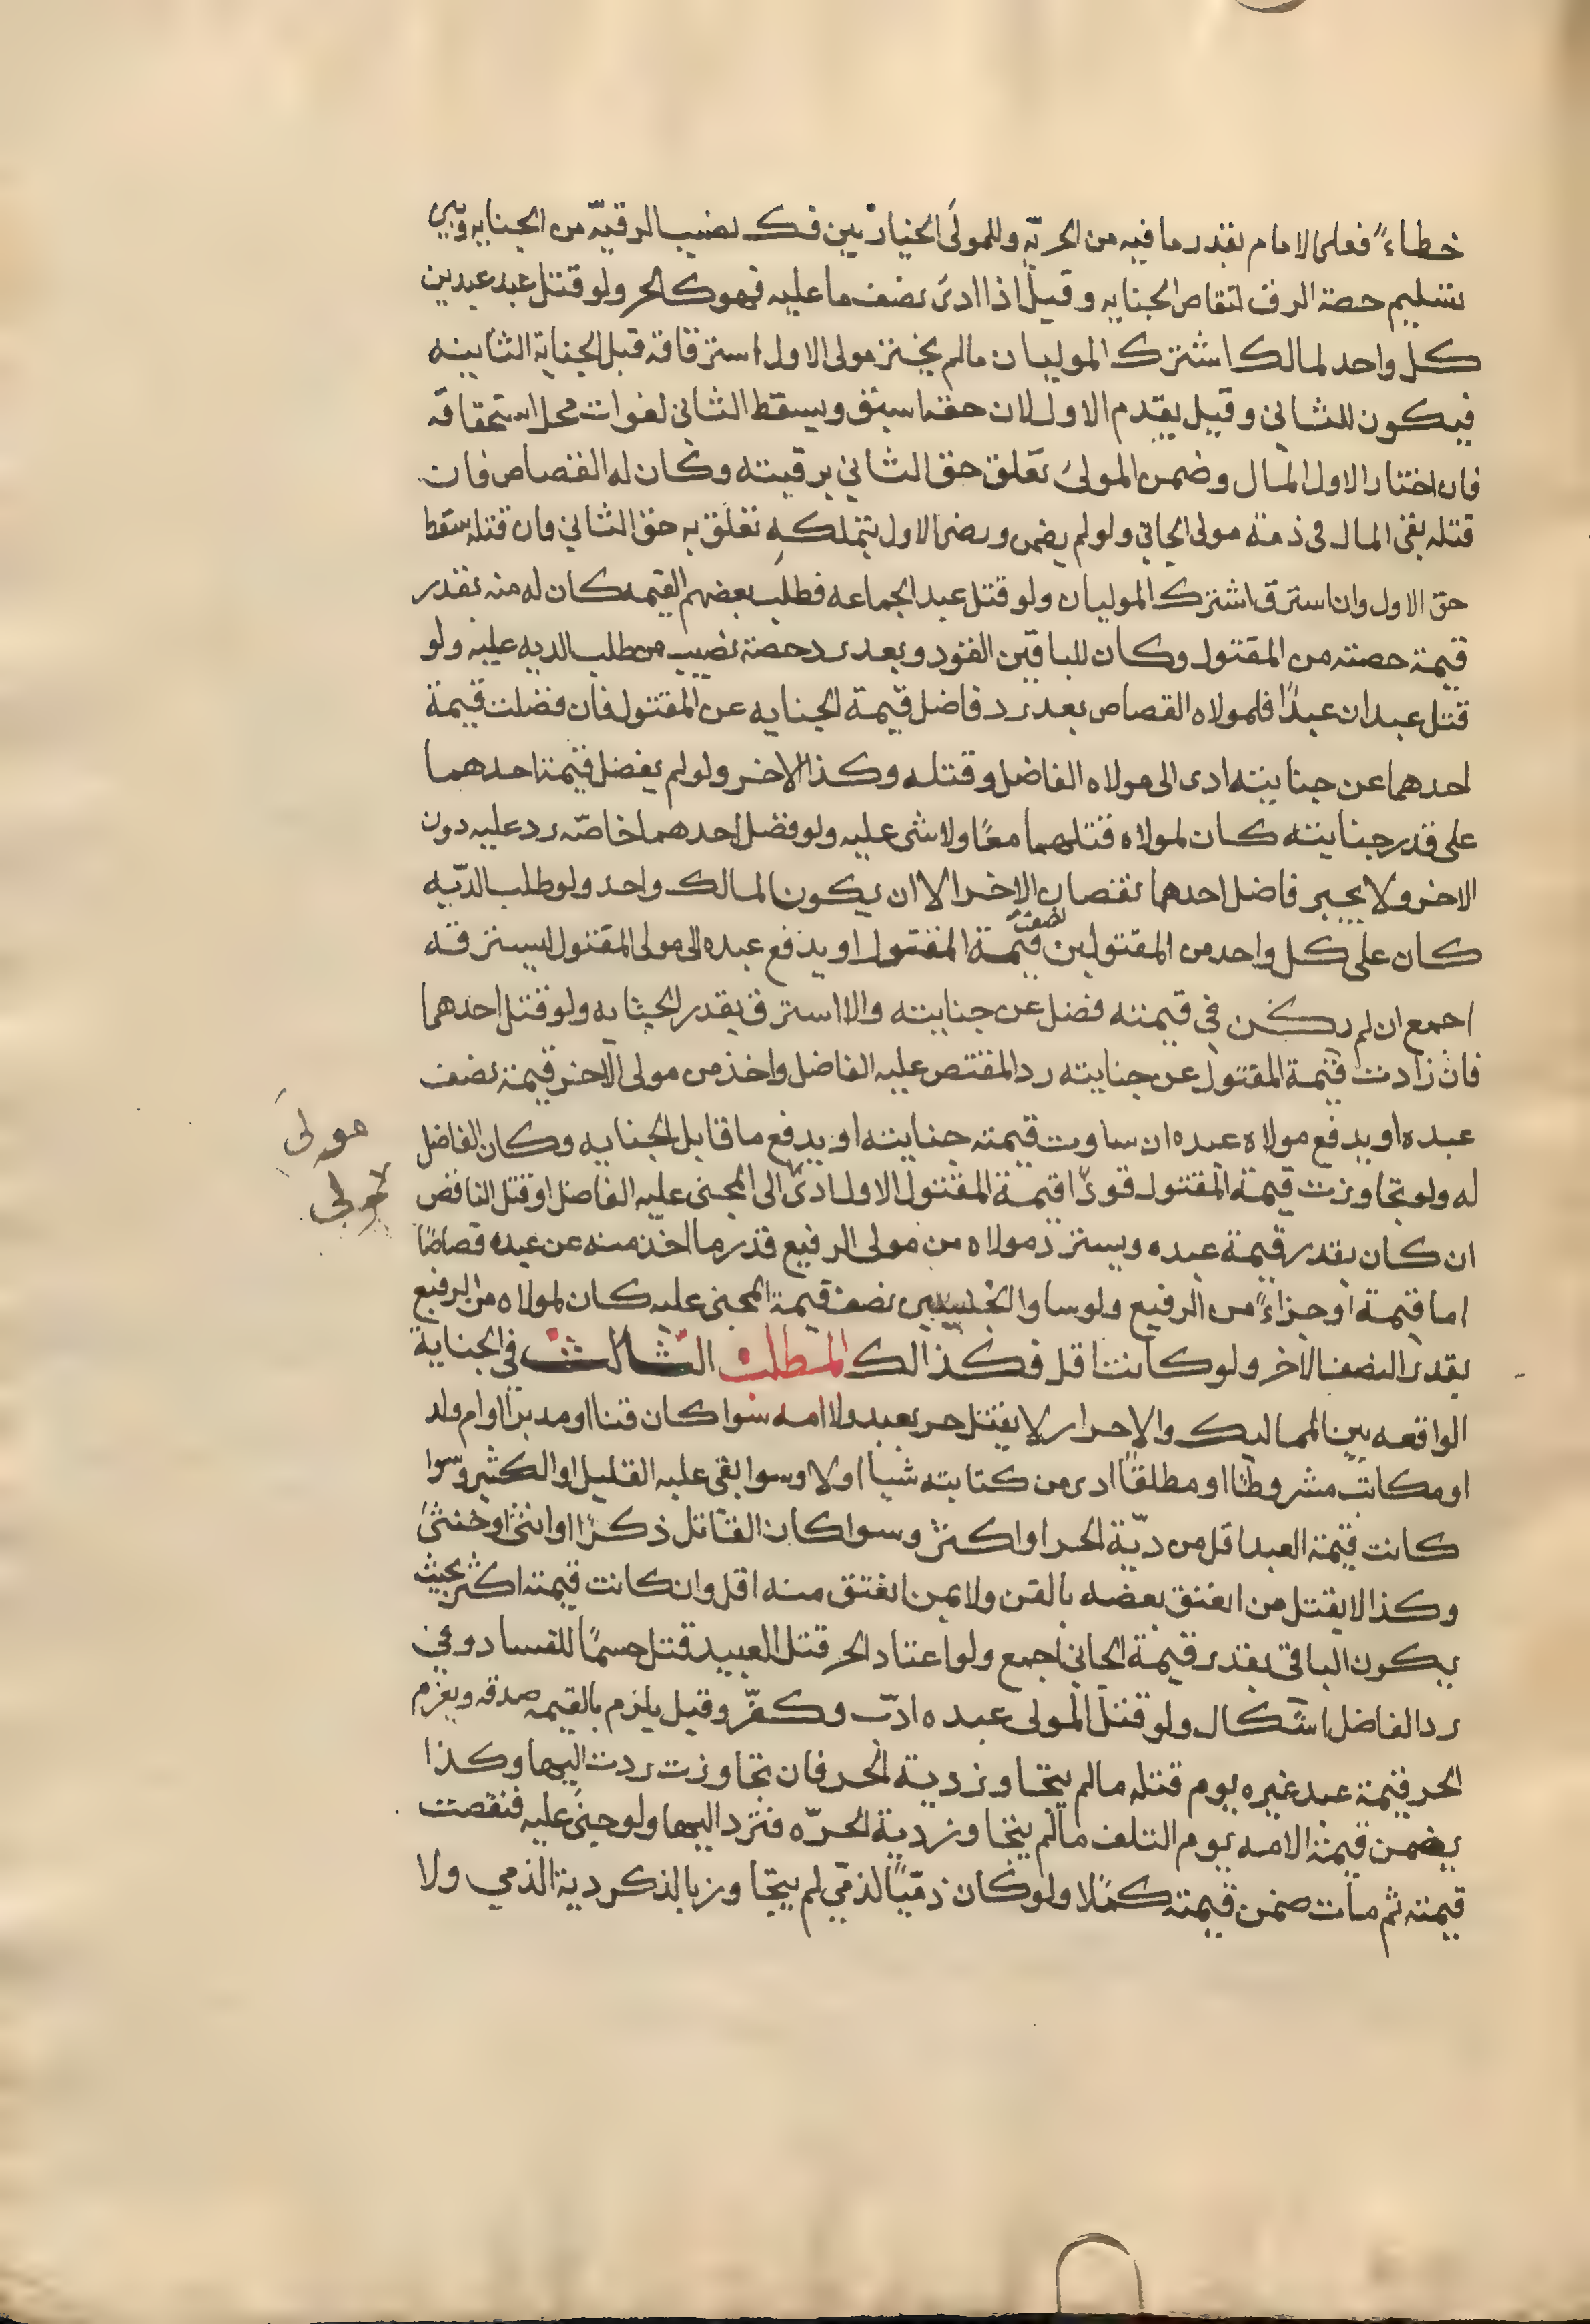 خطاءً فعلى الامام بقدر ما فيه من الحريّه وللمولى الخيار بين فك نصيب الرقيّه من الجنايه وبين
تسليم حصة الرق لتقاص الجنايه وقيل اذا ادى نصف ما عليه فهو كالحر ولو قتل عبد عبدين
كل واحد لمالك اشترك الموليان ما لم يختر مولى الاول استرقاقه قبل الجناية الثانيه
فيكون للثاني وقيل يقدم الاول لان حقه اسبق ويسقط الثاني لفوات محل استحقاقه
فان اختار الاول المال وضمن المولى تعلق حق الثاني برقبته وكان له القصاص فان
قتله بقى المال في ذمة مولى الجاني ولو لم يضمن ورضى الاول بتملكه تعلق به حق الثاني فان قتله سقط
حق الاول وان استرق اشترك الموليان ولو قتل عبد الجماعه فطلب بعضهم القيمه كان له منه بقدر
قيمة حصته من المقتول وكان للباقين القود وبعد رد حصة نصيب من طلب الديه عليه ولو
قتل عبدان عبدًا فلمولاه القصاص بعد رد فاضل قيمة الجنايه عن المقتول فان فضلت قيمة
احدهما عن جنايته ادى الى مولاه الفاضل وقتله وكذا الاخر ولو لم يفضل قيمة احدهما
على قدر جنايته كان لمولاه قتلهما معًا ولا شى عليه ولو فضل احدهما خاصّه رد عليه دون
الاخر ولا يجبر فاضل احدهما نقصان الاخر الا ان يكون لمالك واحد ولو طلب الديّه
كان على كل واحد من المقتولين نصف قيمة المقتول او يدفع عبده الى مولى المقتول ليسترقه
اجمع ان لم يكن في قيمته فضل عن جنايته والا استرق بقدر الجنايه ولو قتل احدهما
فان زادت قيمة المقتول عن جنايته رد المقتص عليه الفاضل واخذ من مولى الاخر قيمة نصف
عبده او يدفع مولاه عبده ان ساوت قيمته جنايته او يدفع ما قابل الجنايه وكان الفاضل
له ولو تجاوزت قيمة المقتول قودًا قيمة المقتول الاول ادى الى المجنى عليه الفاضل او قتل الناقص
مولى
ان كان بقدر قيمة عبده ويسترد مولاه من مولى الرفيع قدر ما اخذ منه عن عبده قصاصًا
اما قيمة او جزاءً من الرفيع ولو ساوا الخسيس نصف قيمة المجنى عليه كان لمولاه من الرفيع
بقدر النصف الاخر ولو كانت اقل فكذالك المطلب الثالث في الجناية
الواقعه بين المماليك والاحرار لا يقتل حر بعبد ولا امه سوا كان قنا او مدبرًا او ام ولد
او مكاتب مشروطا او مطلقًا ادى من كتابته شيا اولا وسوا بقى عليه القليل او الكثير وسوا
كانت قيمة العبد اقل من ديّة الحر او اكثر وسوا كان القاتل ذكرًا او انثى او خنثى
وكذا لا يقتل من انعتق بعضه بالقن ولا بمن انعتق منه اقل وان كانت قيمته اكثر بحيث
يكون الباقي بقدر قيمة الجاني اجمع ولو اعتاد الحر قتل العبيد قتل حسمًا للفساد وفي
رد الفاضل اشكال ولو قتل المولى عبده ادّب وكفّر وقيل يلزم بالقيمه صدقه ويغرم
الحر قيمة عبد غيره يوم قتله ما لم يتجاوز دية الحر فان تجاوزت ردت اليها وكذا
يضمن قيمة الامه يوم التلف ما لم يتجاوز دية الحرّه فترد اليها ولو جنى عليه فنقصت
قيمته ثم مات ضمن قيمته كملا ولو كان ذميًا لذمي لم يتجاوز بالذكر دية الذمي ولا